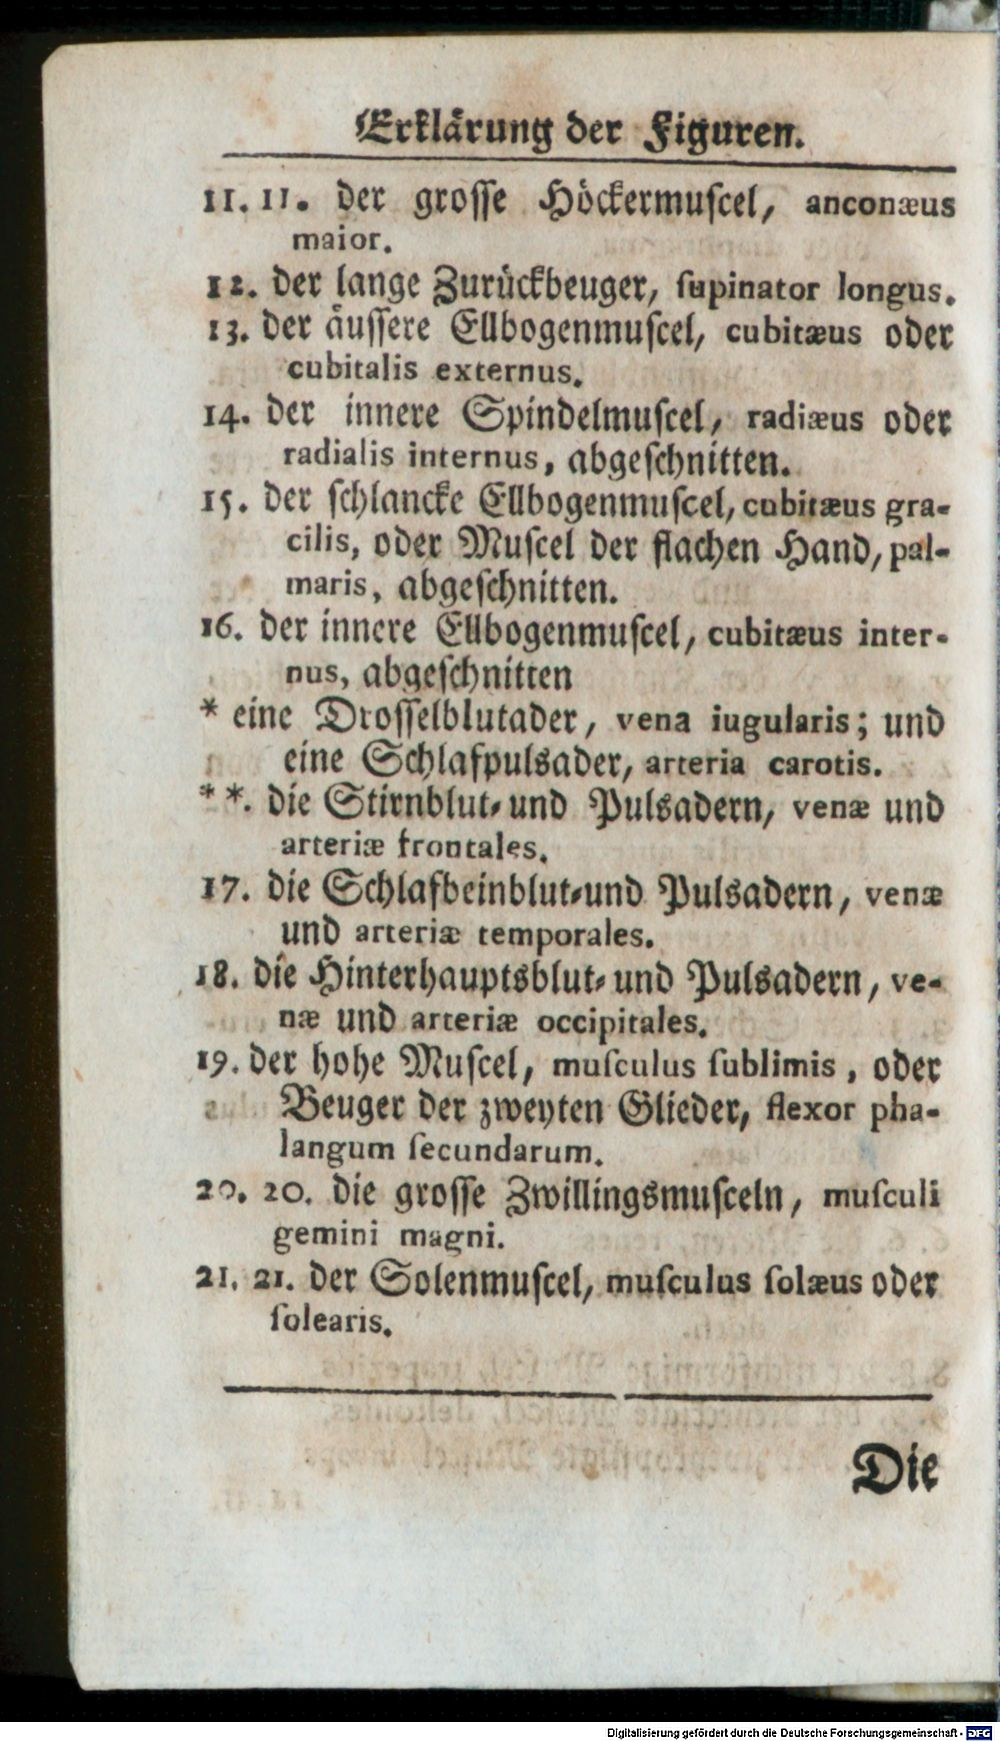 Erklärung der Figuren.
11. 11. der grosse Höckermuſcel, anconæus
maior.
12. der lange Zurückbeuger, ſupinator longus.
13. der äuſſere Ellbogenmuſcel, cubitæus oder
cubitalis externus.
14. der innere Spindelmuſcel, radiæus oder
radialis internus, abgeſchnitten.
15. der ſchlancke Ellbogenmuſcel, cubitæus gra-
cilis, oder Muſcel der flachen Hand, pal-
maris, abgeſchnitten.
16. der innere Ellbogenmuſcel, cubitæus inter-
nus, abgeſchnitten
* eine Droſſelblutader, vena iugularis; und
eine Schlafpulsader, arteria carotis.
* *. die Stirnblut- und Pulsadern, venæ und
arteriæ frontales.
17. die Schlafbeinblut-und Pulsadern, venæ
und arteriæ temporales.
18. die Hinterhauptsblut- und Pulsadern, ve-
næ und arteriæ occipitales.
19. der hohe Muſcel, muſculus ſublimis, oder
Beuger der zweyten Glieder, flexor pha-
langum ſecundarum.
20. 20. die groſſe Zwillingsmuſceln, muſculi
gemini magni.
21. 21. der Solenmuſcel, muſculus ſolæus oder
ſolearis.
Die
Digitalisierung gefördert durch die Deutsche Forschungsgemeinschaft - DFG